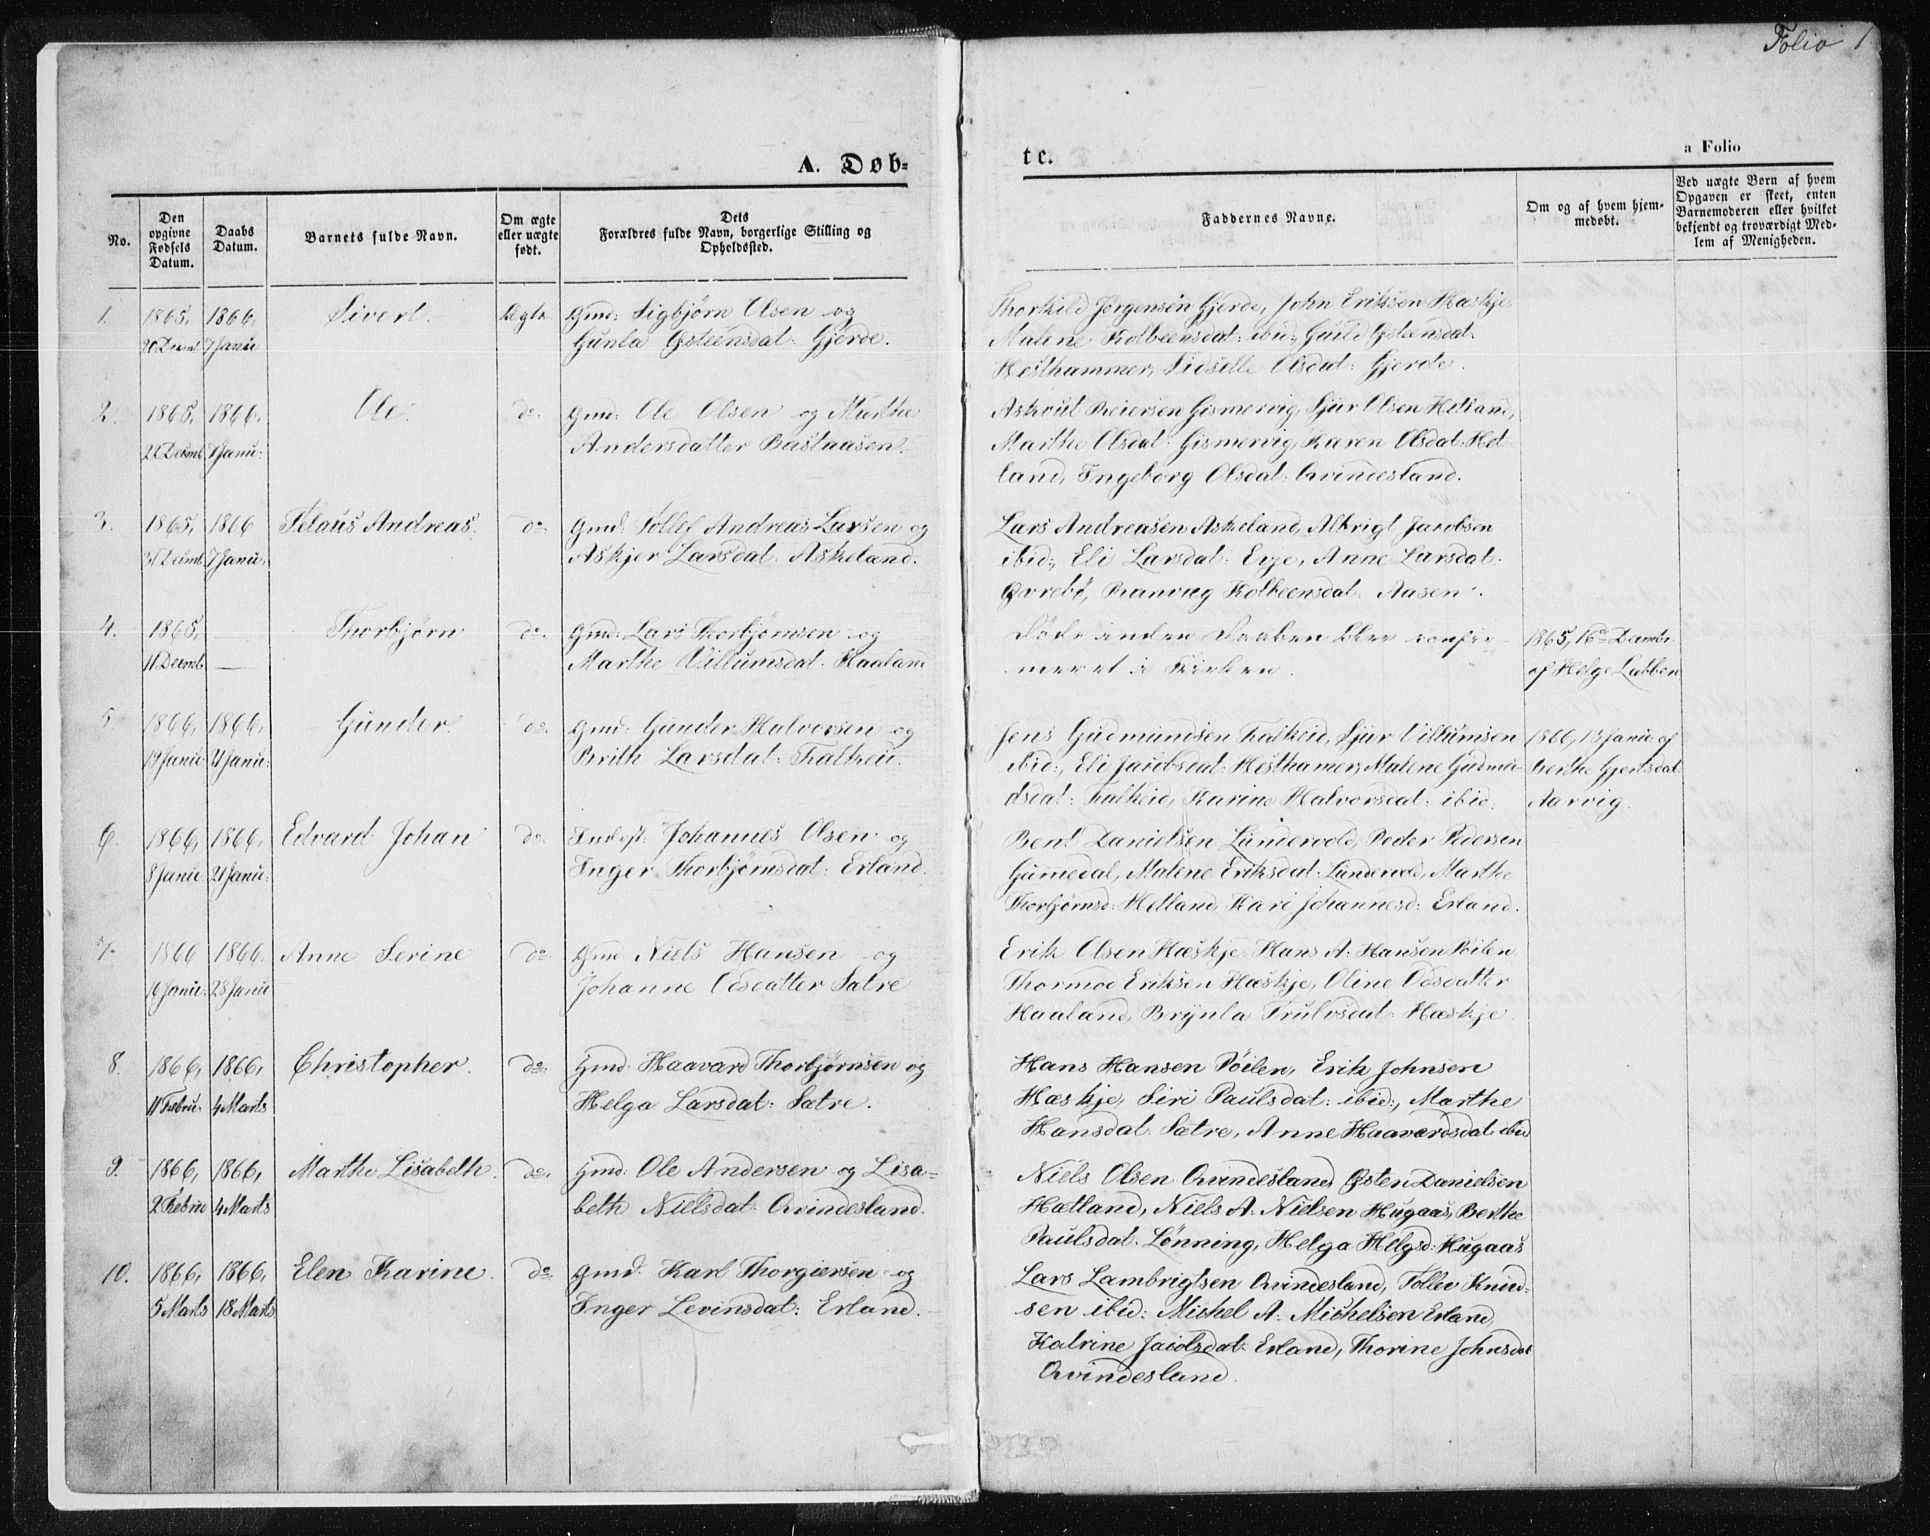 Folio 1
A. Døb-
te.
a Folio
No.
Den opgivne Fødsels Datum.
Daabs Datum.
Barnets fulde Navn.
Om ægte eller uægte født.
Dets Forældres fulde Navn, borgerlige Stilling og Opholdssted.
Faddernes Navne.
Om og af hvem hjemmedøbt.
Ved uægte Børn af hvem Opgaven er skeet, enten Barnemoderen eller hvilket bekjendt og troværdigt Medlem af Menigheden.
1. 1865, 1866, Sivert. Ægte. Gmd: Sigbjørn Olsen og
20 Decmb. 7 Janu: Gunla Østeensdat: Gjerde.
Thorkild Jørgensen Gjerde, John Eriksen Hæskje
Malene Kolbeensdat: ibid:, Østeensdat:
Hesthammer, Sidselle Olsdat: Gjerde.
2. 1865, 1866, Ole. do. Gmd: Ole Olsen og Marthe
Decmb. Janu: Andersdatter Bustaasen.
Reiersen Gismervig, Sjur Olsen Hetland,
Marthe Olsdat: Gismervig, Karen Olsdat: Het-
land, Ingeborg Olsdat: Qvindesland.
3. 1865, 1866 Andreas. do Gmd: Tollef Andreas Larsen og
31 Decmb. 7 Janu: Askjer Larsdat: Askeland.
Lars Andreasen Askeland, Albrigt Jacobsen
ibid:, Eli Larsdat: Erje, Anne Larsdat:
Øvrebø, Ranveig Kolbeensdat: Aasen.
4. 1865, Thorbjørn do. Gmd: Lars Thorbjørnsen og
11 Decmb — Marthe Villumsdat: Haaland
Døde inden Daaben blev confir-
meret i Kirken.
1865, 16de Decmbr
af Helge Labben
5 1866, 1866, Gunder. do. Gmd: Gunder Halvorsen og
Janu: 21 Janu: Brith Larsdat: Falkeid.
Jens Gudmundsen Falkeid, Sjur Villumsen
ibid:, Eli Jacobsdat: Hesthamer, Malene Gudmu-
dsdat: Falkeid, Karine Halvorsdat: ibid.
1866, 13 Janu: af
Berthe Gjertsdat
Aarvig.
6. 1866, 1866, Edvard Johan do. Indst: Johannes Olsen og
8 Janu 21 Janu: Inger Thorbjørnsdat: Erland.
Bent Danielsen Lundervold, Peder Pedersen
Gumedal, Malene Eriksdat: Lundervold, Marthe
Thorbjørnsd: Hetland, Kari Johannesd: Erland.
7. 1866 1866, Anne Serine do. Gmd Niels Hansen og
16 Janu: 28 Janu Johanne Odsdatter Sætre
Erik Olsen Hæskje, Hans A: Hansen Røilen
Thormod Eriksen Hæskje, Oline Odsdatter
Haaland, Brynla Trulvsdat: Hæskje.
8. 1866, 1866, Christopher. do. Gmd: Haavard Thorbjørnsen og
11 Febru: 4 Marts Helga Larsdat: Sætre.
Hans Hansen Røilen, Erik Johnsen
Hæskje, Siri Paulsdat: ibid:, Marthe
Hansdat: Sætre, Anne Haavardsdat: ibid
9. 1866, 1866, Marthe Lisabeth. do. Gmd: Ole Andersen og Lisa-
2 Febru 4 Marts beth Nielsdat: Qvindesland.
Niels Olsen Qvindesland, Østen Danielsen
Hætland, Niels A: Nielsen Hugaas, Berthe
Paulsdat. Lønning, Helga Helgsd: Hugaas
10. 1866, 1866, Elen Karine. do. Gmd: Karl Thorgiersen og
5 Marts 18 Marts Inger Levinsdat: Erland.
Lars Lambrigtsen Qvindesland, Tollev Knud-
sen ibid: Michel A: Michelsen Erland,
Katrine Jacobsdat: Erland, Thorine Johnsdat
Qvindesland.